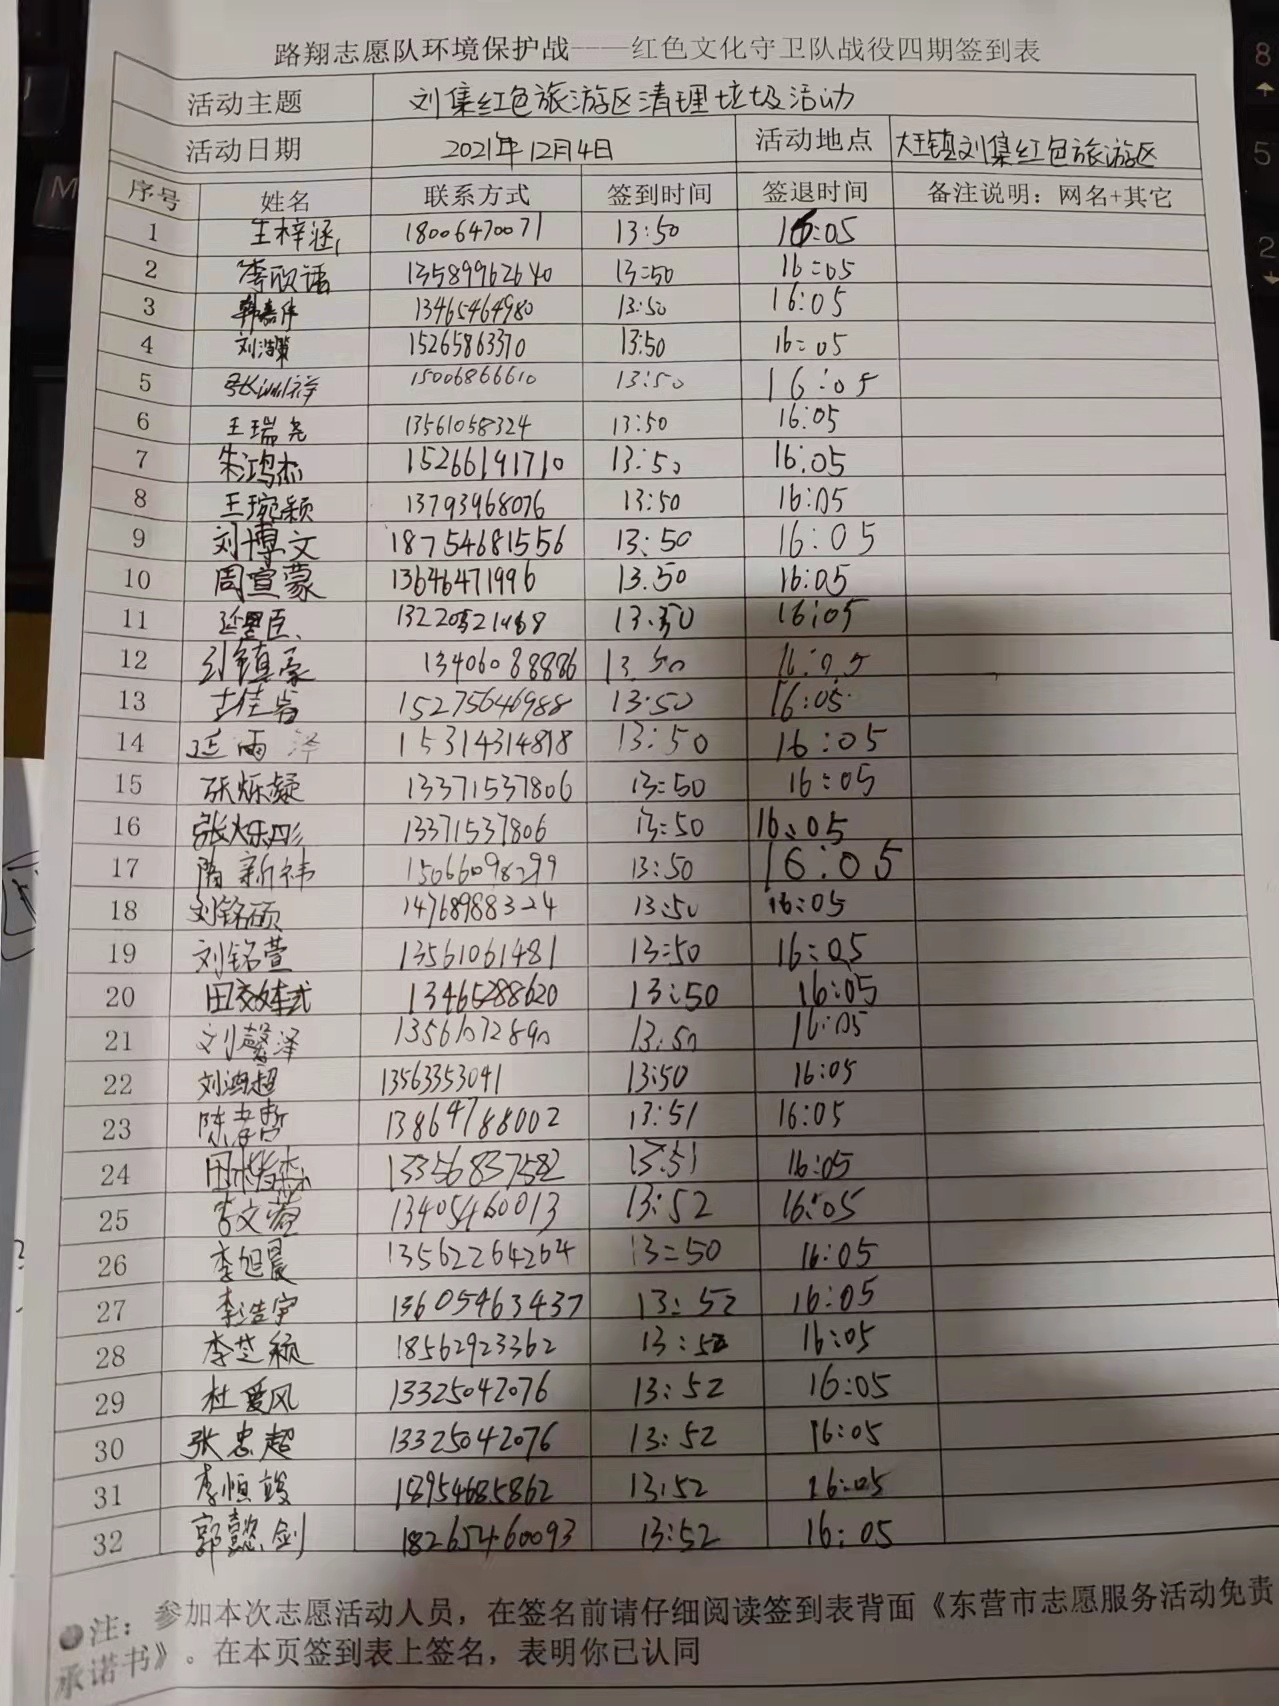 路翔志愿队环境保护战——红色文化守卫队战役四期签到表
活动主题 刘集红色旅游区清理垃圾活动
活动日期 2021年12月4日 活动地点 大王镇刘集红色旅游区
序号 姓名 联系方式 签到时间 签退时间 备注说明：网名+其它
1 王梓涵 18006470071 13:50 16:05
2 李欣语 13589962640 13:50 16:05
3 韩嘉伟 13465464980 13:50 16:05
4 刘浩策 15265863370 13:50 16:05
5 15006866610 13:50 16:05
6 王瑞尧 13561058324 13:50 16:05
7 朱鸿杰 15266191710 13:50 16:05
8 王琬颖 13793968076 13:50 16:05
9 刘博文 18754681556 13:50 16:05
10 周萱蒙 13646471996 13.50 16:05
11 13:50 16:05
12 刘镇豪 13406088886 13.50 16:05
13 15275646988 13:50 16:05
14 延雨泽 15314314818 13:50 16:05
15 张烁凝 13371537806 13:50 16:05
16 张烁彤 13371537806 13:50 16:05
17 隋新祎 15066098299 13:50 16:05
18 刘铭硕 14768988324 13:50 16:05
19 刘铭萱 13561061481 13:50 16:05
20 13465288620 13:50 16:05
21 刘馨泽 13561072890 13:50 16:05
22 刘鸿超 13563353041 13:50 16:05
23 陈孝哲 13864788002 13:51 16:05
24 13356837582 13:51 16:05
25 李文萱 13405460013 13:52 16:05
26 李旭晨 13562264264 13:50 16:05
27 李浩宇 13605463437 13:52 16:05
28 李芝颖 18562923362 13:52 16:05
29 杜爱风 13325042076 13:52 16:05
30 张忠超 13325042076 13:52 16:05
31 李恒竣 18954685862 13:52 16:05
32 郭懿剑 18265460093 13:52 16:05
●注：参加本次志愿活动人员，在签名前请仔细阅读签到表背面《东营市志愿服务活动免责
承诺书》。在本页签到表上签名，表明你已认同